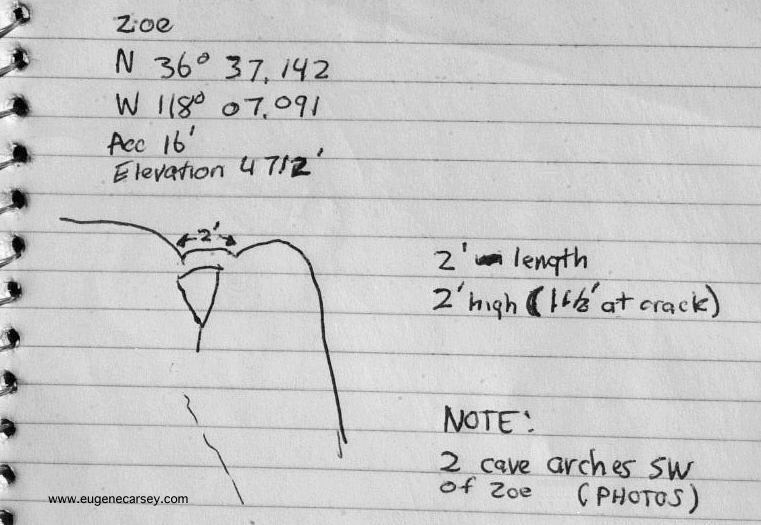 Zoe
N 36° 37.142
W 118° 07.091
Acc 16'
Elevation 4712'
2'
2' length
2' high ( at crack)
NOTE:
2 cave arches SW
of Zoe (PHOTOS)
www.eugenecarsey.com